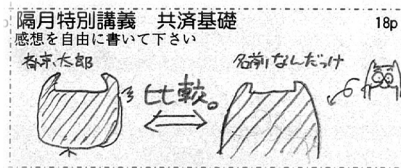 隔月特別講義 共済基礎 18p
感想を自由に書いて下さい
太郎
比較。
名前なんだっけ